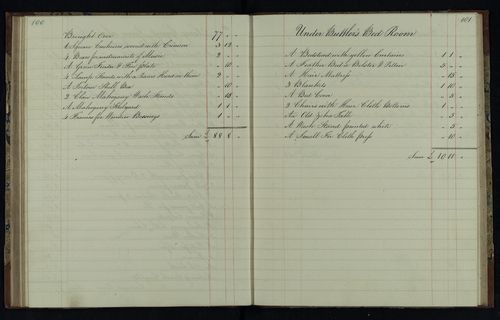 100
Brought Over 77 " -
6 Square Cushions covered with Crimson 3 12 -
4 Boxes for instruments of Music 2 - -
A Green Fender & Fire plate - 10 -
4 Lamp Stands with a Lions Head on them 2 - -
A Tortoise Shell Box - 10 -
2 Claw Mahogany Wash Stands - 18 -
A Mahogany 1 1 -
4 Frames for Window 1 - -
Sum £ 88 8 -
101
Under Butler's Bed Room
A Bedstead with yellow Curtains 1 1 -
A Feather Bed & Bolster & Pillow 5 - -
A Hair Mattress - 15 -
3 Blankets 1 10 -
A Bed Cover - 5 -
2 Chairs with Hair Cloth Bottoms 1 - -
An Old Table - 5 -
A Wash Stand painted white - 5 -
A Small Fir Cloth press - 10 -
Sum £ 10 11 -